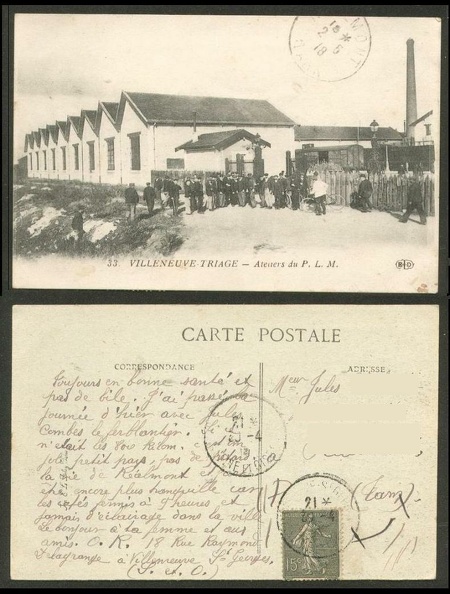 33. VILLENEUVE-TRIAGE — Ateliers du P. L. M.
CARTE POSTALE
CORRESPONDANCE
ADRESSE
Toujours en bonne santé et
pas de bile. J'ai passé la
journée d'hier avec Jules
Combes le ferblantier.
n'était les 800 kilom.
joli petit pays, pas de
la vie de Réalmont
être encore plus tranquille car
les cafés fermés à 9 heures et
jamais d'éclairage dans la ville
Le bonjour à ta femme et aux
amis. 18 Rue Raymond
Lagrange à Villeneuve St Georges
(S. et O.)
Jules
(Tarn)